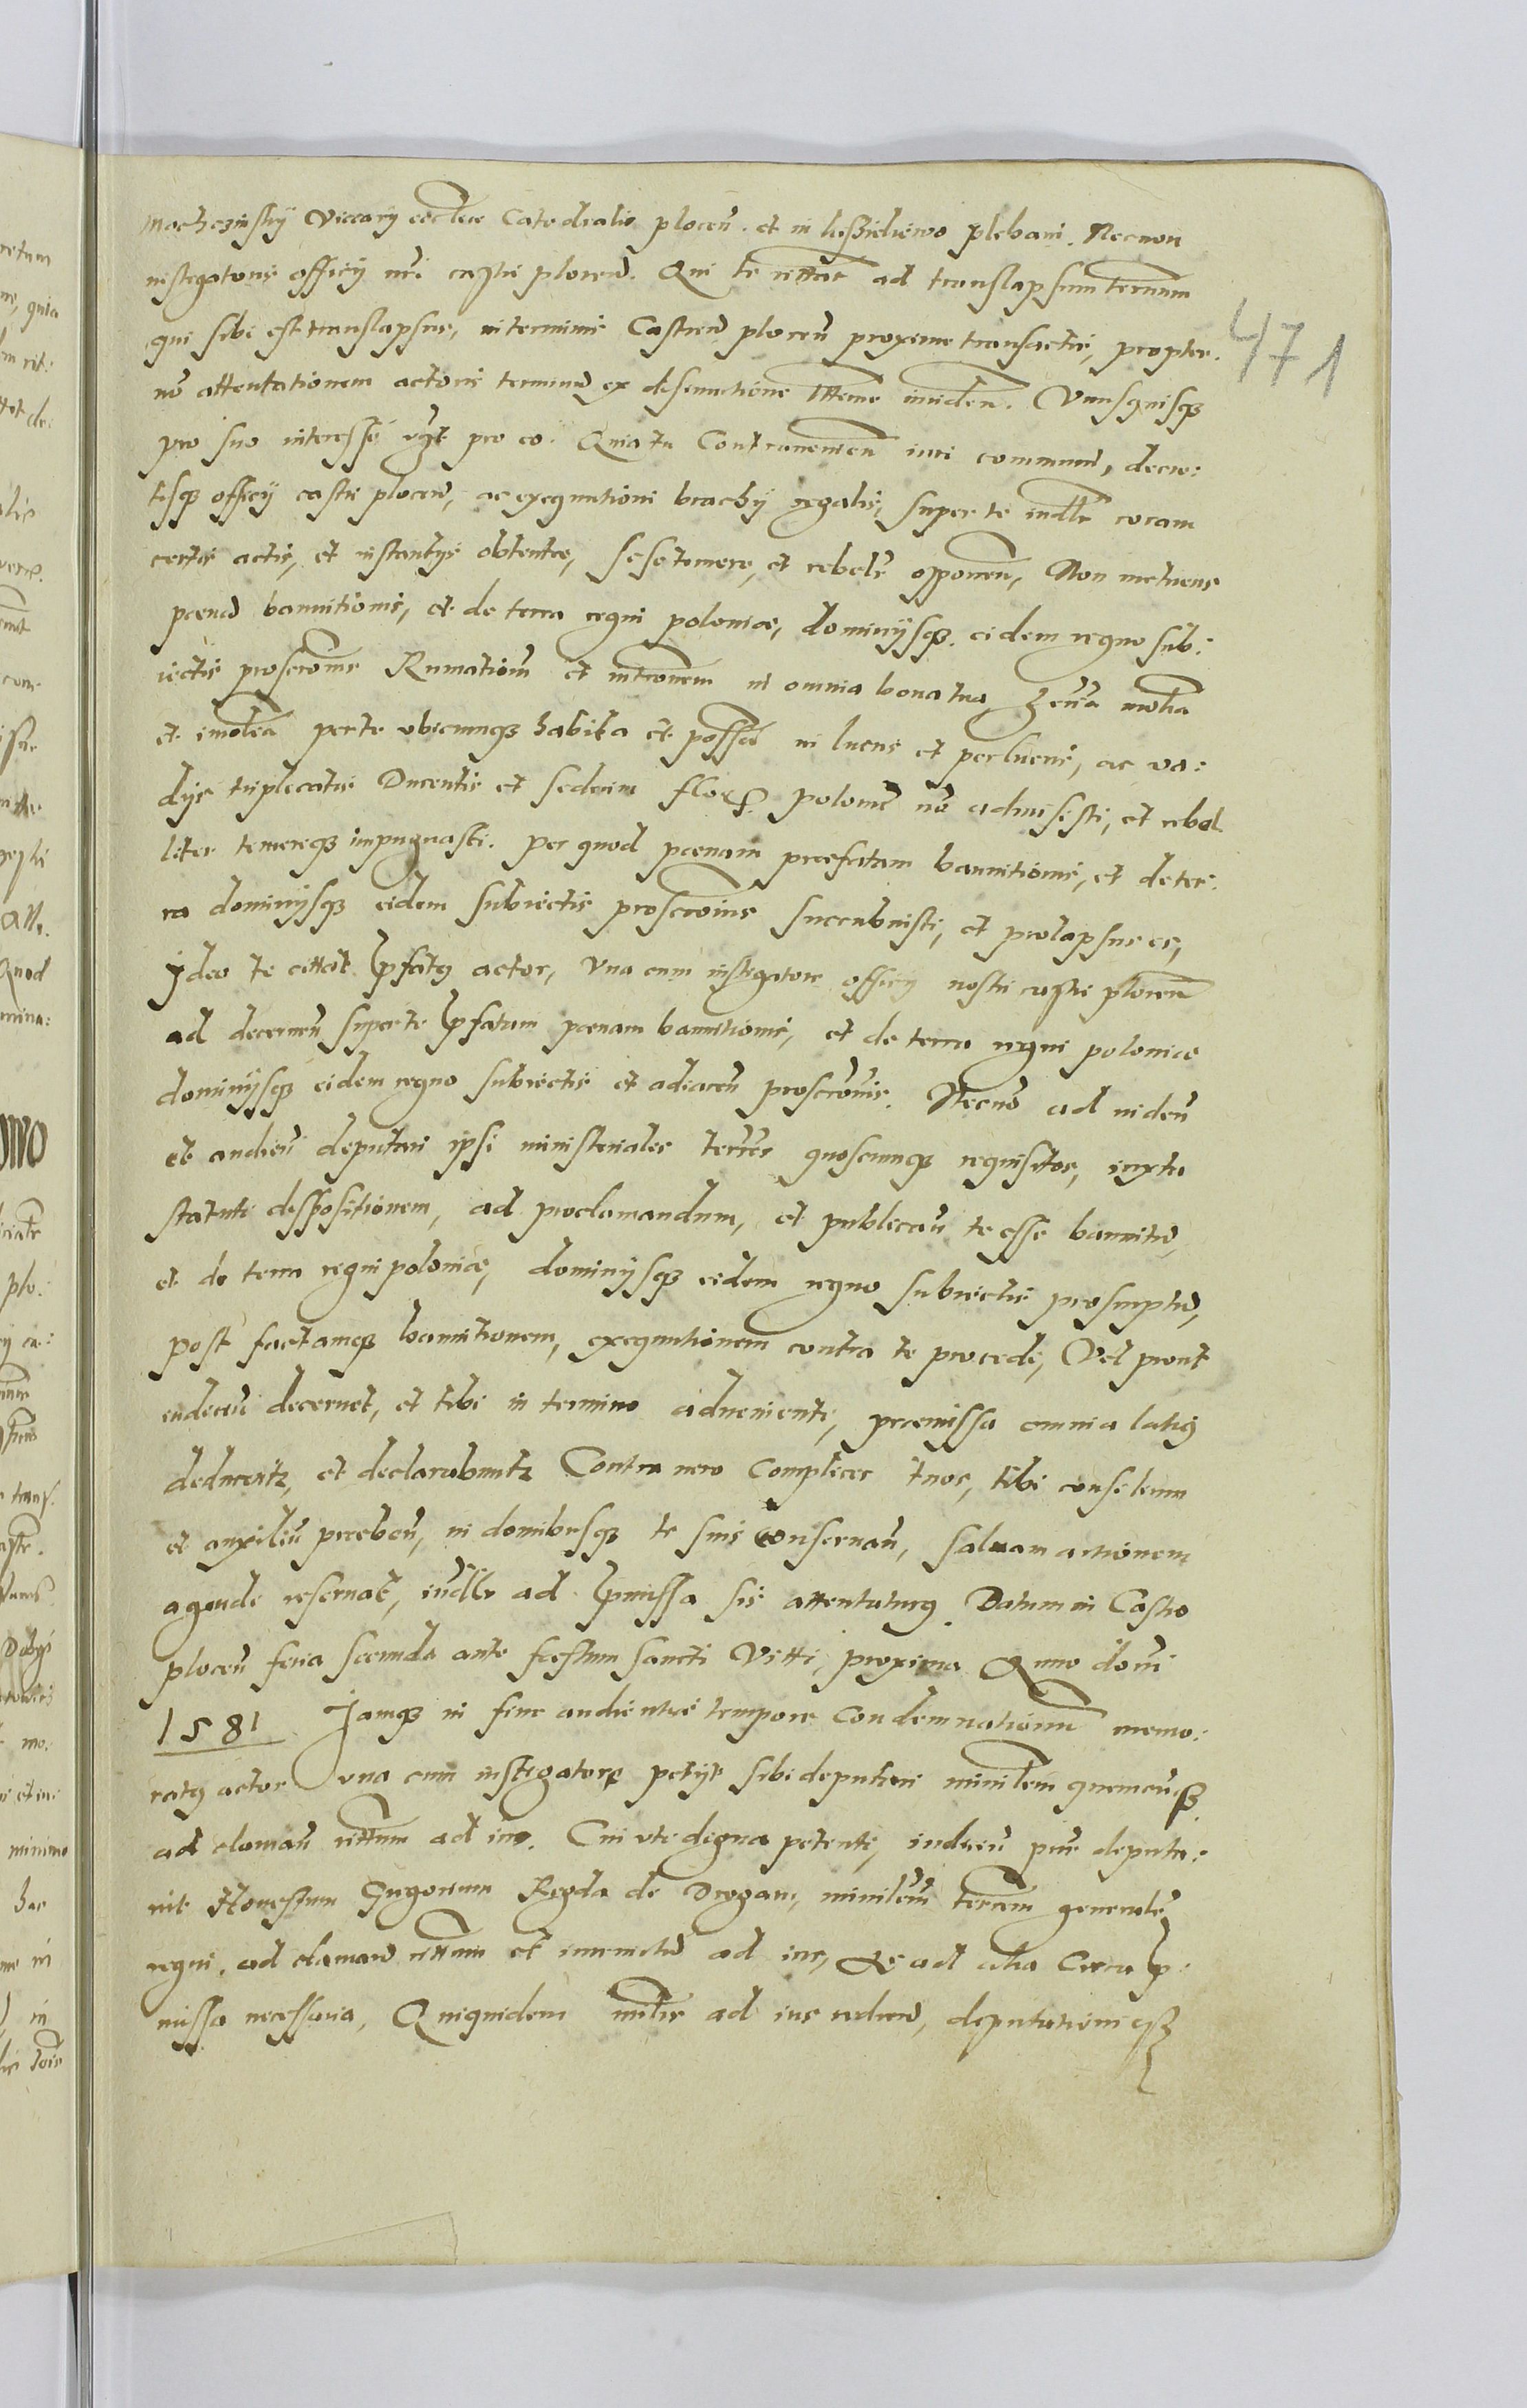 Machczinskÿ Viccarÿ eccliae Catedralis plocen. et in plebani. Necnon
instigatoris officÿ nri castri plocen. Qui te cittat ad translapsum terminum
qui sibi est translapsus, in terminis Castren plocen proxime transactis, propter
471
no attentationem actoris terminu ex Vnusquisq
pro suo interesse vgt pro eo. Quia tu Contraveniendo iuri communi, decre:
tisq officÿ castri plocen, ac exequutioni brachÿ regalis, super te iudlr coram
certis actis, et instantÿs obtentae, sese temere, et rebelr opponen, Non metuens
poenas bannitionis, et de terra regni poloniae, dominÿsq. eidem regno sub:
iectis proscronis Rumationi et intronem in omnia bona tua, mobilia
et imobilia per te vbicunq habita et possessa in lucris et perlucris, ac va:
dÿs triplicatis Ducentis et sedecim flor. polonic no admisisti, et rebel
liter temereq impugnasti. per quod poenam praefatam bannitionis, et de ter:
ra dominÿsq eidem subiectis proscronis succubuisti, et prolapsus es,
Ideo te cittat pfatus actor, vna cum instigatore officÿ nostri castri plocen
ad decernen super te pfatam poenam bannitionis, et de terra regni poloniae
dominÿsq eidem regno subiectis et adiacen proscronis. Necno ad viden
et audien deputari ipsi ministeriales terres quoscunq requisitos, iuxta
statuti dispositionem, ad proclamandum, et publican te esse bannitu,
et de terra regni poloniae, dominÿsq eidem regno subiectis proscriptu,
post factamq bannitionem, exequutionem contra te procedi, Vel prout
iudeciu decernet, et tibi in termino adveniente, praemissa omnia latius
deducentr, et declarabuntr Contra vero Complices tuos, tibi consilium
et auxiliu praeben, in domibusq te suis conservan, salvam actionem
agendi reservat, iudlr ad pmissa sis attentaturus. Datum in Castro
plocen feria secunda ante foestum sancti Vitti, proxima Anno domi
1581 Jamq in fine audientiae tempore Condemnationum memo:
ratus actor vna cum instigatore petÿt sibi deputari minilem quemcuq
ad claman cittum ad ius. Cui vte digna petenti, iudiciu pns deputa:
vit Honestum Grzegorium Regda de Drogan, minilem terrem generale
regni, ad claman cittum et invenctu ad ius, Et ad alia circa p:
missa necessaria, Quiquidem milis ad ius redien, deputationiq